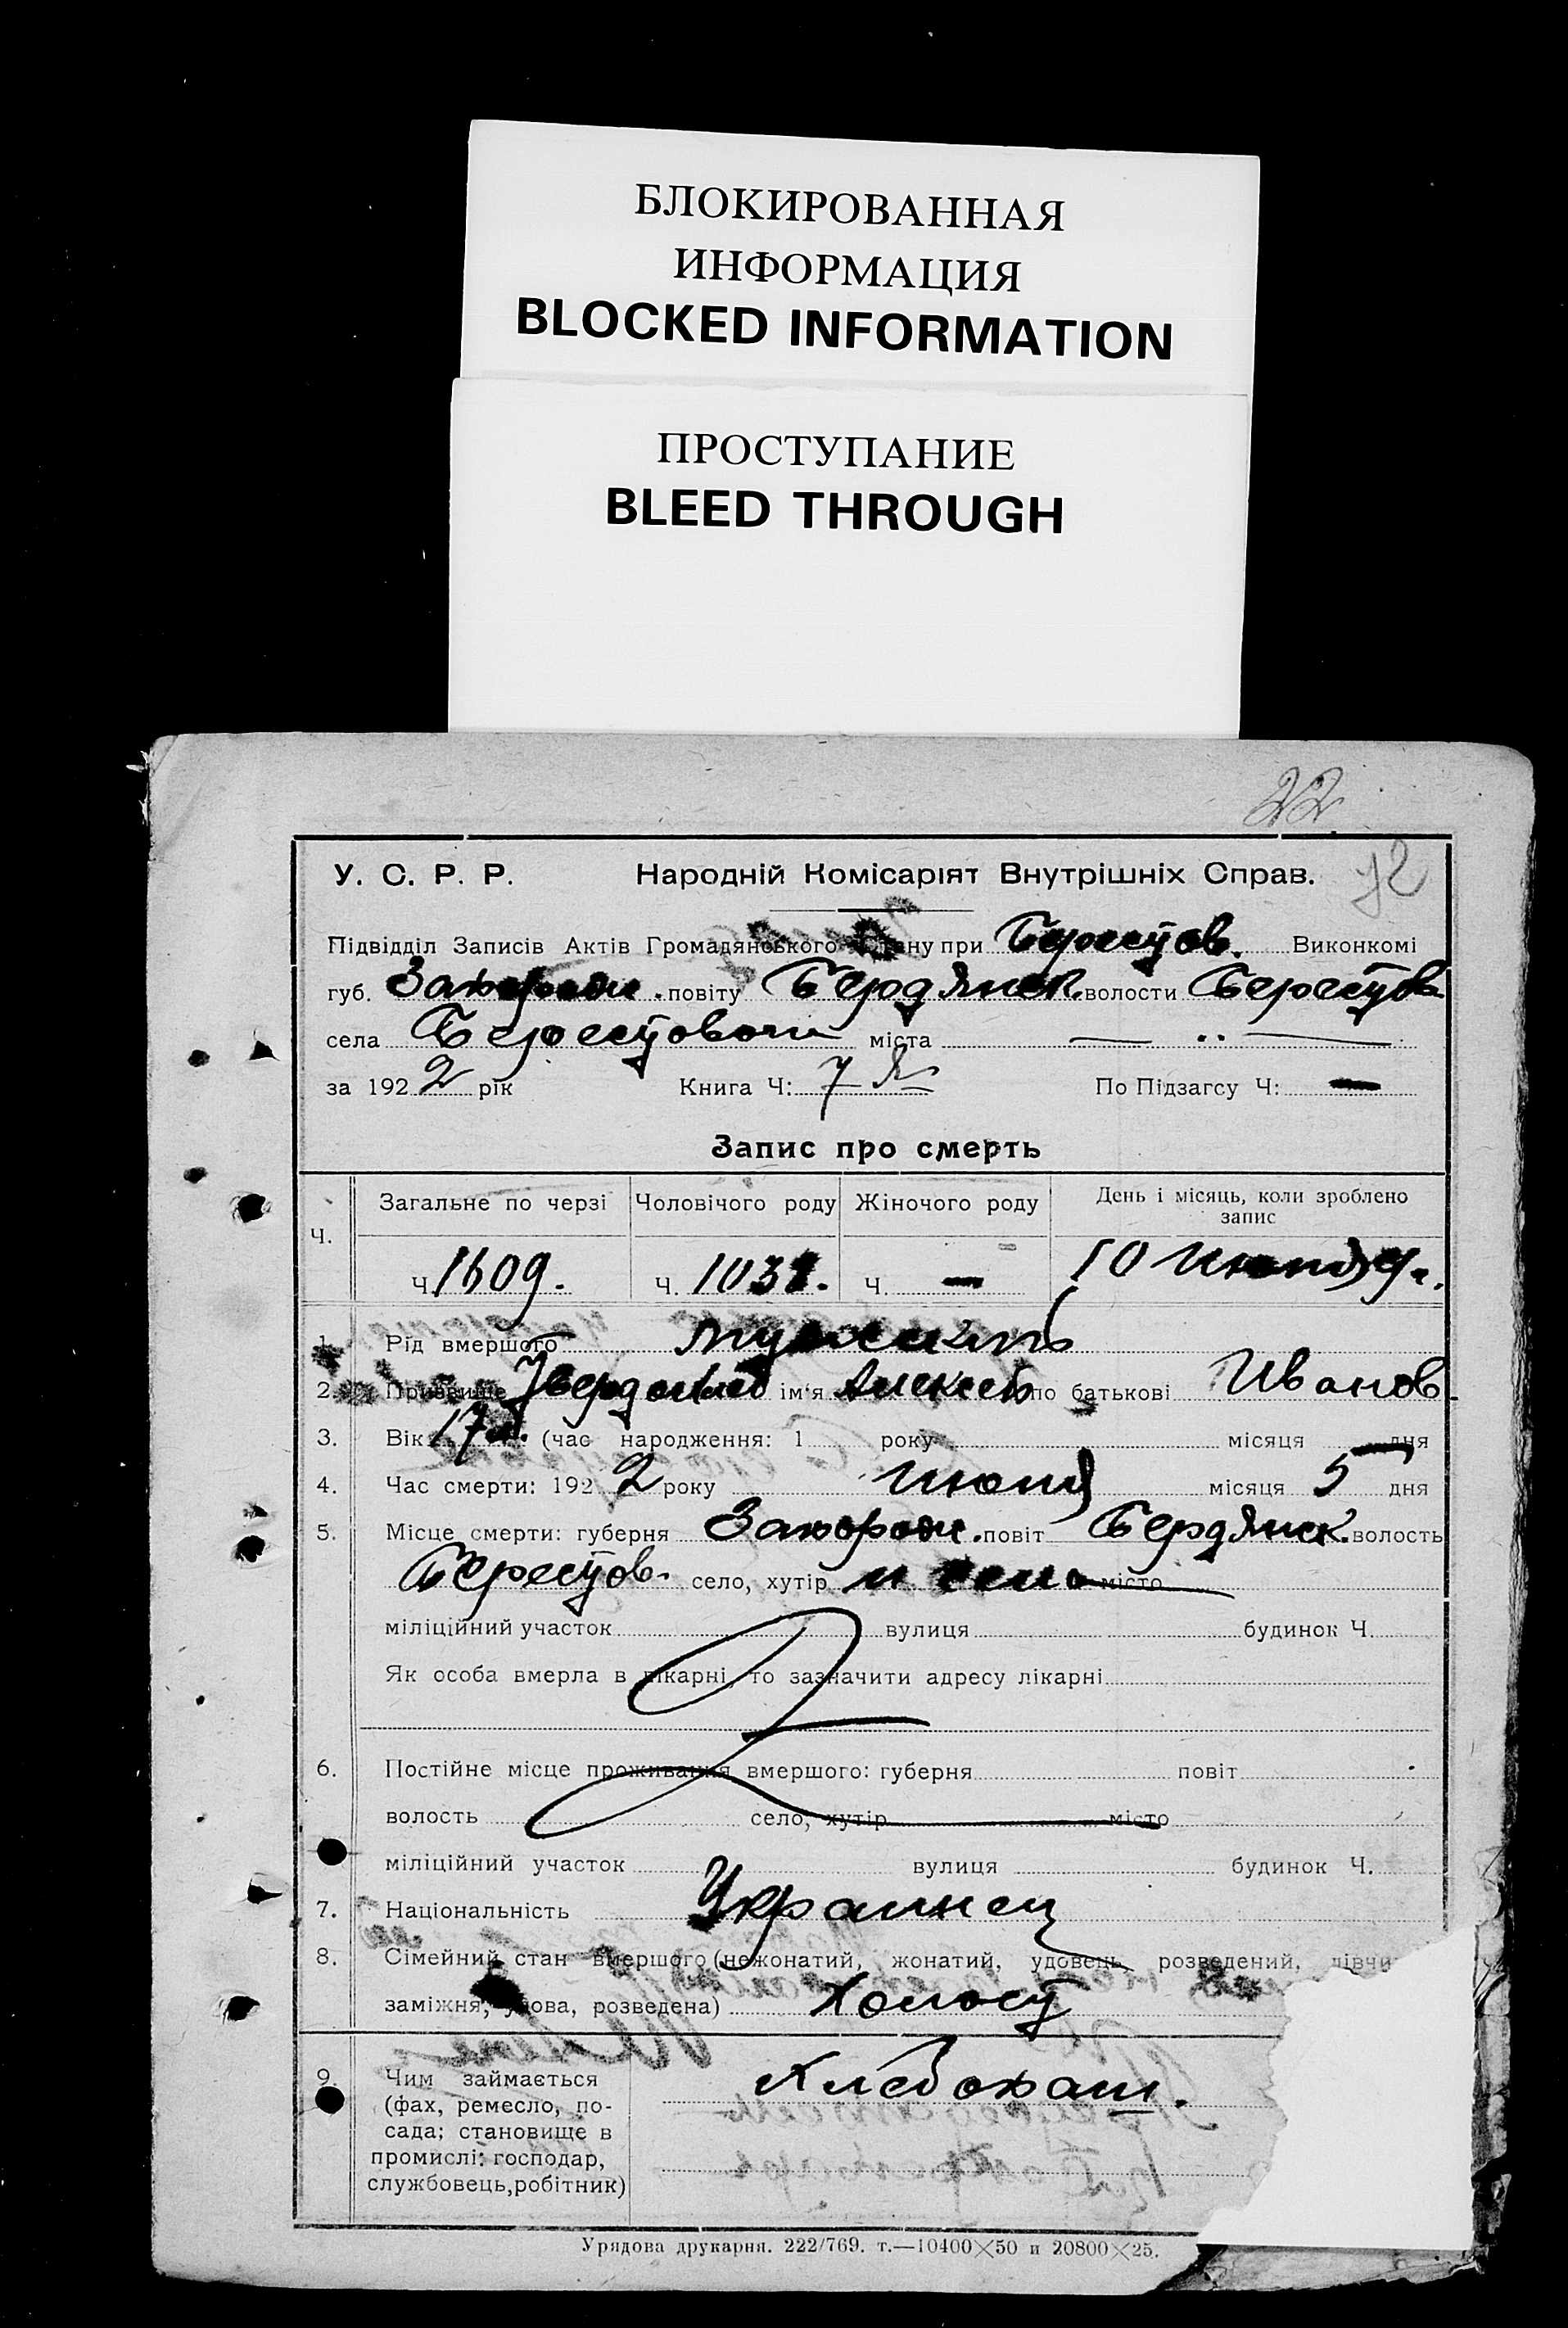 БЛОКИРОВАННАЯ
ИНФОРМАЦИЯ
BLOCKED INFORMATION
ПРОСТУПАНИЕ
BLEED THROUGH
22
72
У. С. Р. Р. Народній Комісаріят Внутрішніх Справ.
Підвідділ Записів Актів Громадянського Стану при Берестов. Виконкомі
губ. Запорож. повіту Бердянск. волости Берестов
села Берестовоги міста — „ —
за 1922 рік Книга Ч: 7 По Підзагсу Ч: —
Запис про смерть
Ч. Загальне по черзі Чоловічого роду Жіночого роду День і місяць, коли зроблено запис
Ч. 1609. Ч. Ч. — 10 Июня
1. Рід вмершого мужской
2. Призвище ім'я Алексей по батькові Иванов
3. Вік 17 л. (час народження: 1 року місяця дня
4. Час смерти: 1922 року Июня місяця 5 дня
5. Місце смерти: губерня Запорож. повіт Бердянск. волость
Берестов. село, хутір и село місто
міліційний участок вулиця будинок Ч.
Як особа вмерла в лікарні, то зазначити адресу лікарні
6. Постійне місце проживання вмершого: губерня повіт
волость село, хутір місто
міліційний участок вулиця будинок Ч.
7. Національність Украинец
8. Сімейний стан вмершого (нежонатий, жонатий, удовець, розведений, дівчи
заміжня, удова, розведена) Холост
9. Чим займається Хлебопаш.
(фах, ремесло, по-
сада; становище в
промислі: господар,
службовець, робітник)
Урядова друкарня. 222/769. т.—10400×50 и 20800×25.